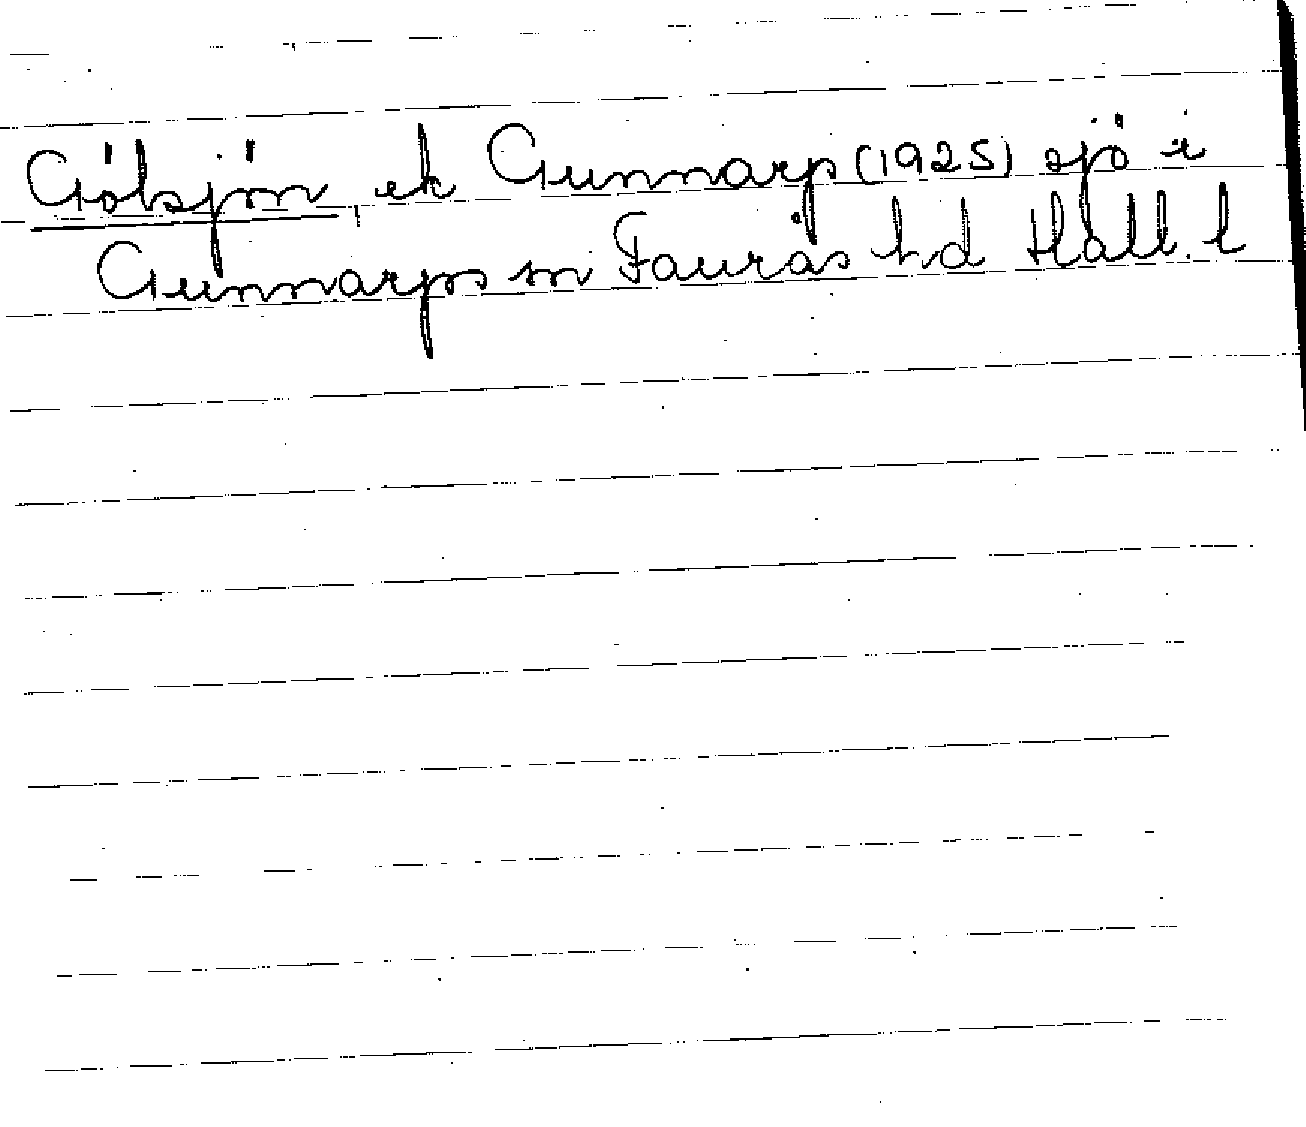 Göksjön, ek Gunnarp (1925) sjö i
Gunnarps sn Faurås hd Hall. l